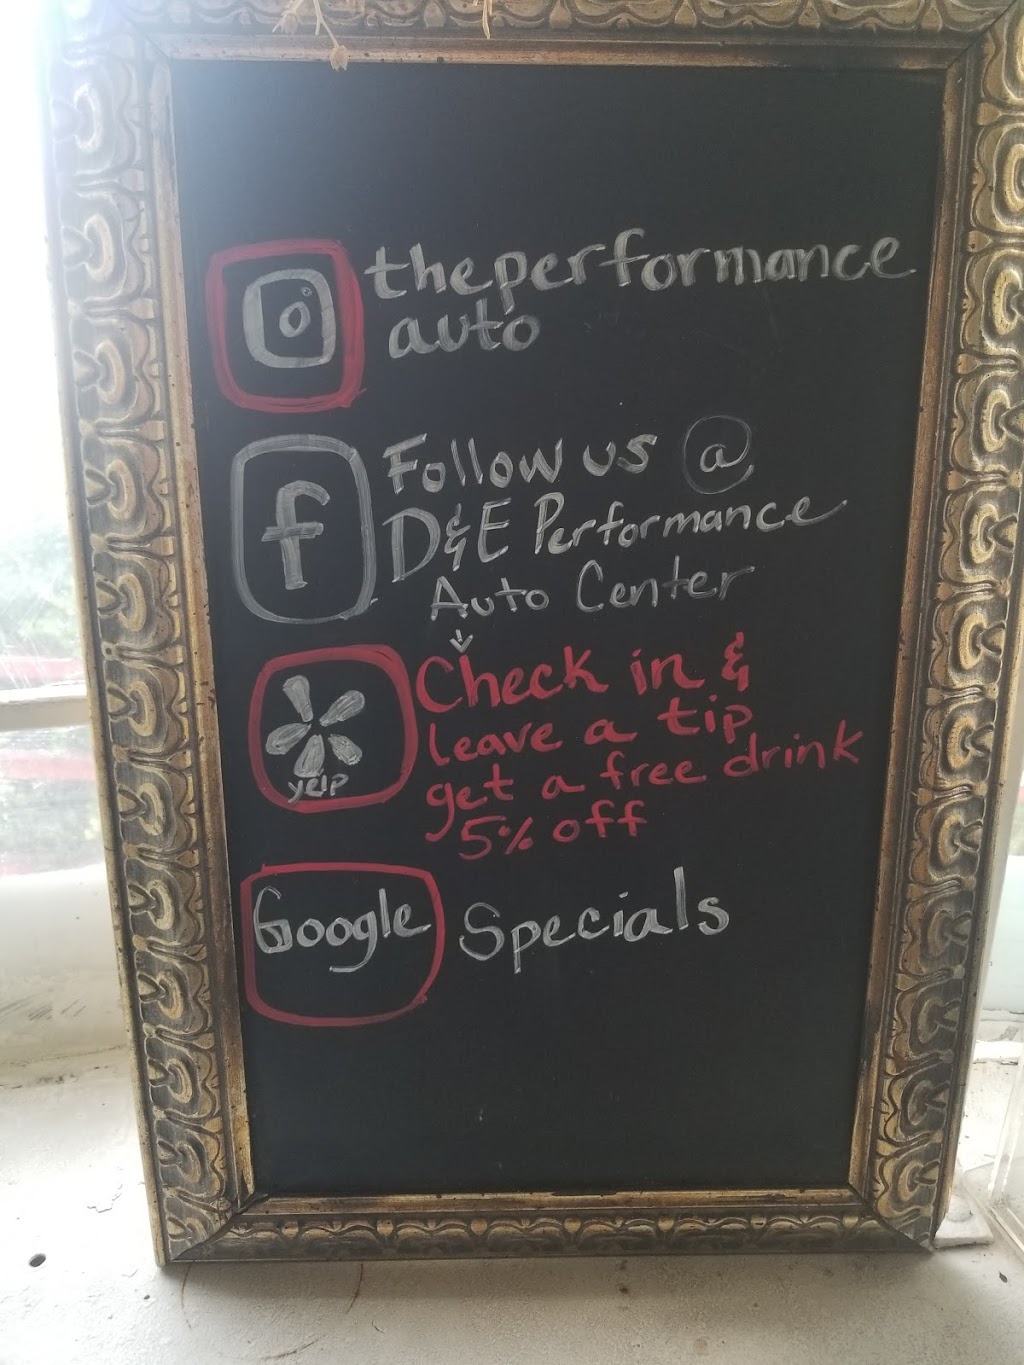 theperformance
auto
f
Follow us @
D&E Performance
Auto Center
yelp
Check in &
leave a tip
get a free drink
5% off
Google
Specials